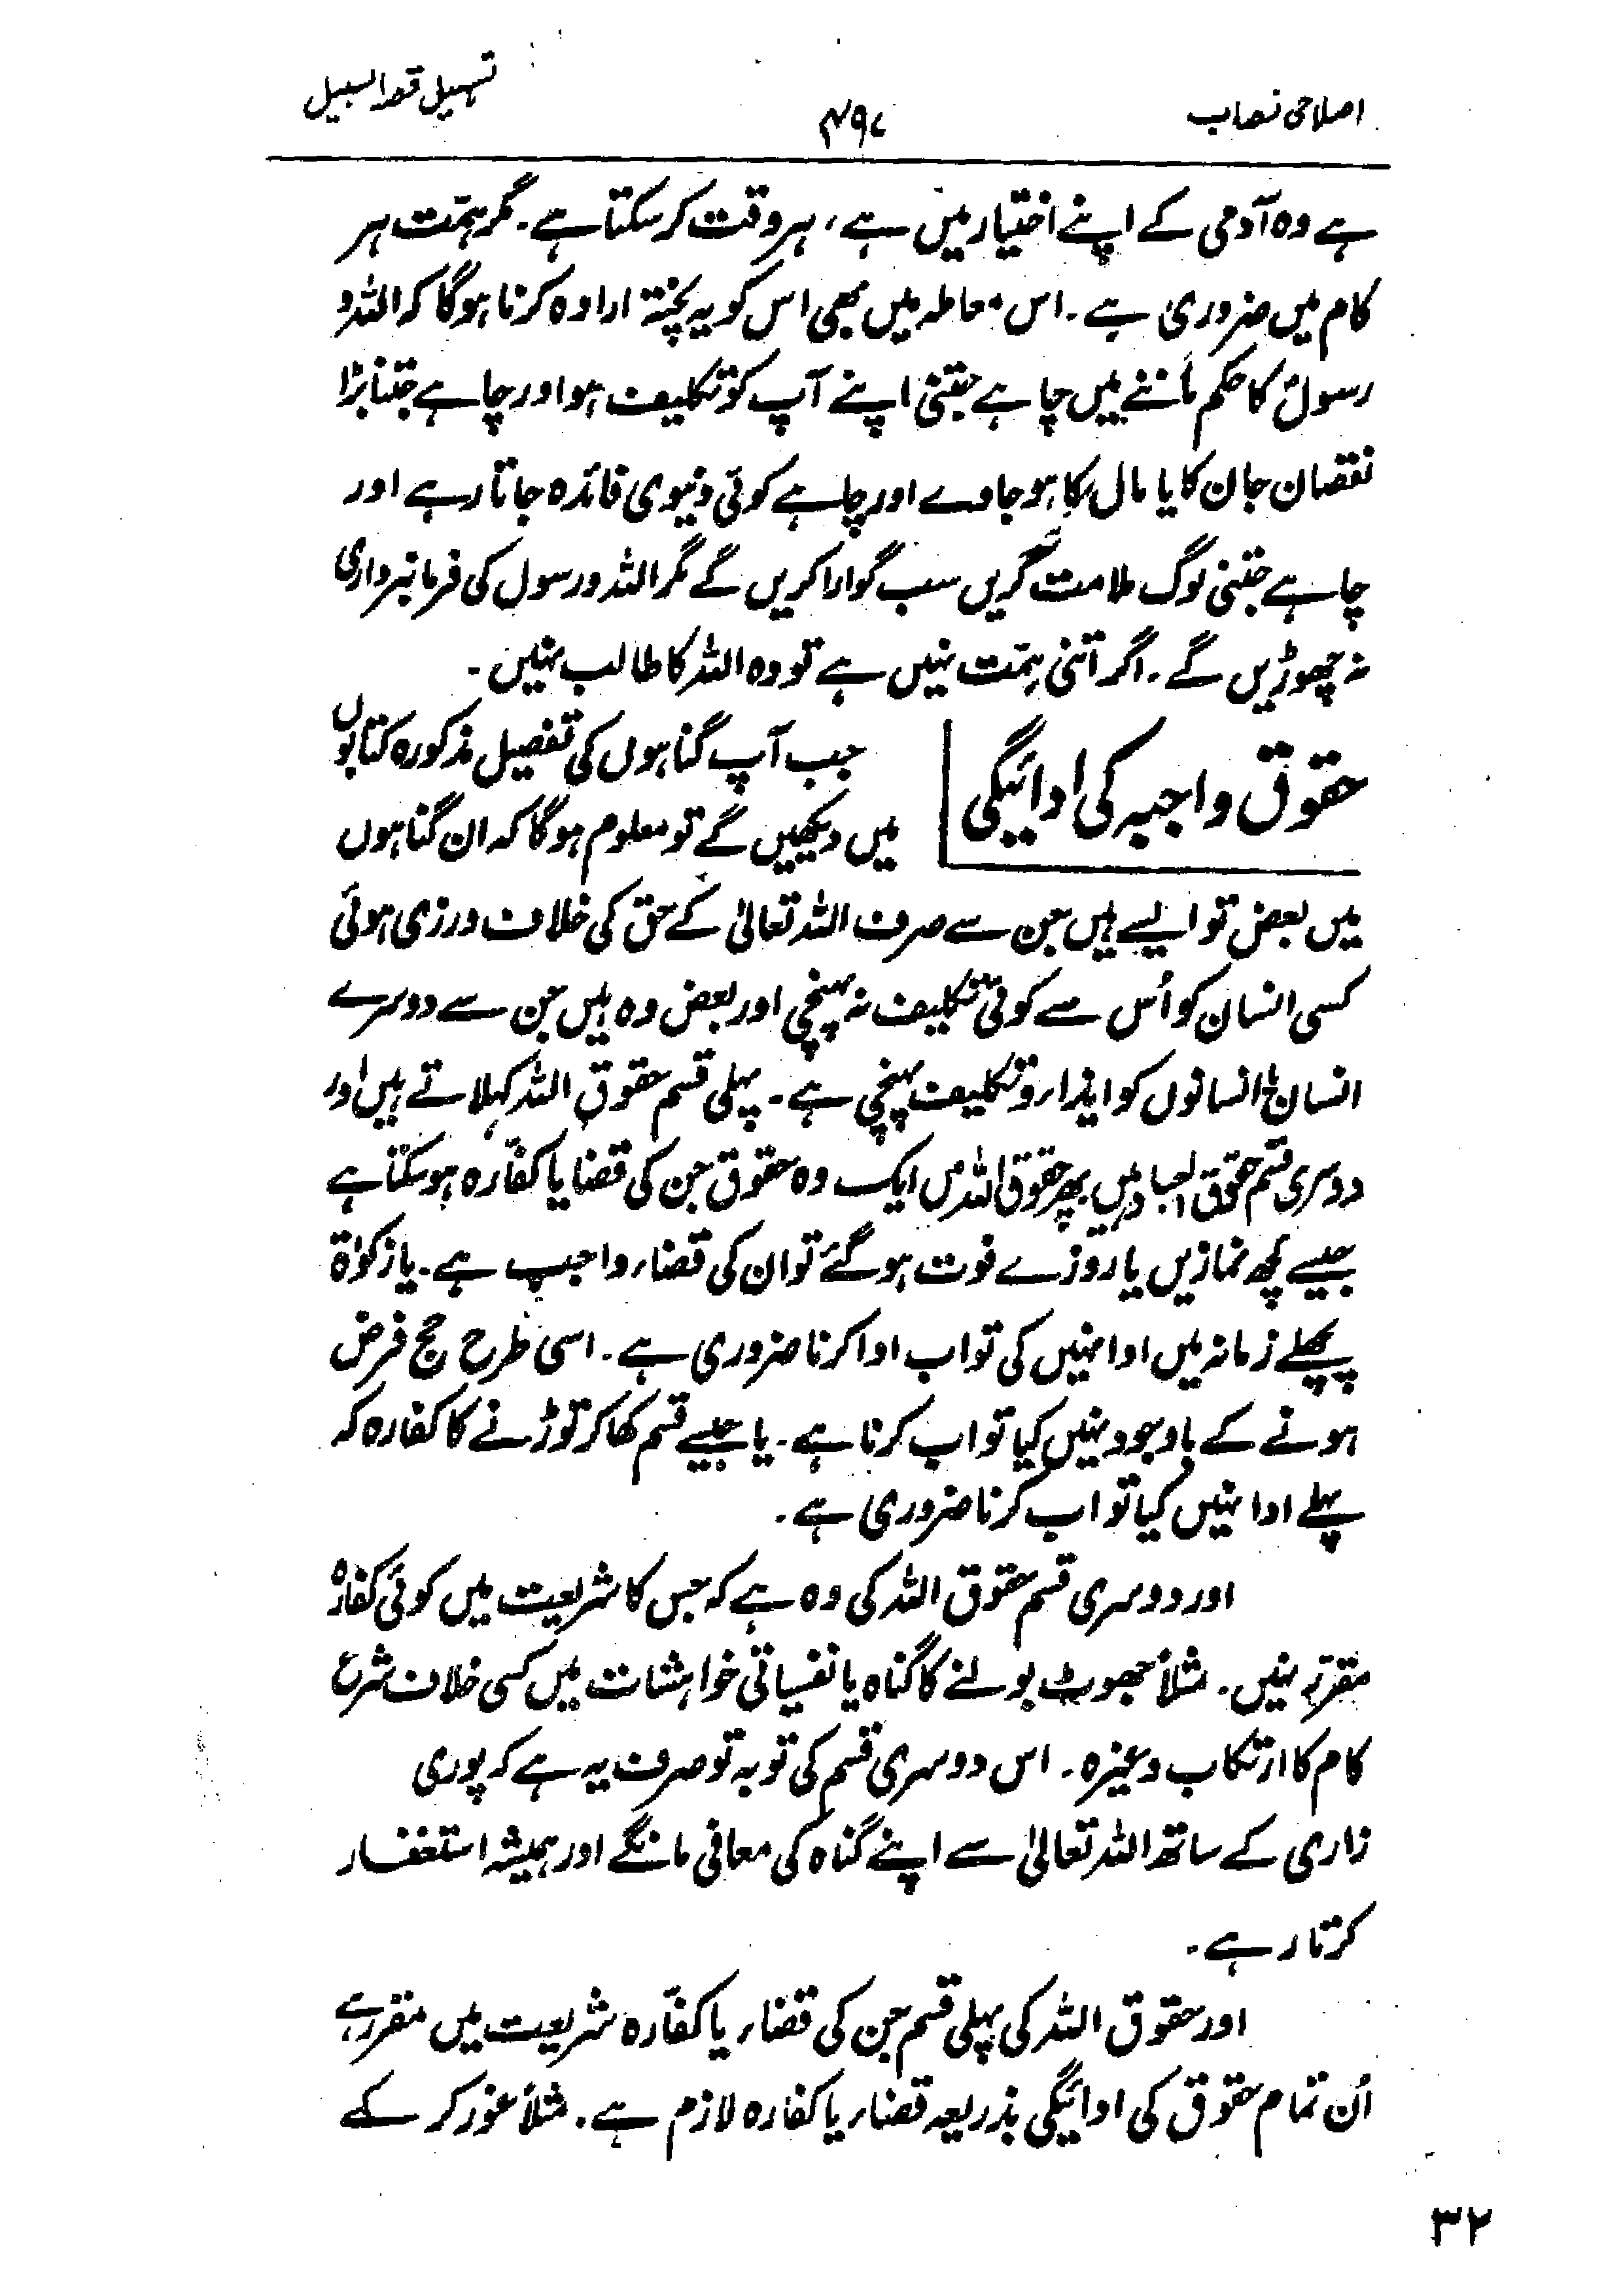 اصلاحی نصاب
۴۹۷
تسہیل قصد السبیل
ہے وہ آدمی کے اپنے اختیار میں ہے، ہر وقت کر سکتا ہے۔ مگر ہمّت ہر
کام میں ضروری ہے۔ اس معاملہ میں بھی اس کو یہ پختہ ارادہ کرنا ہوگا کہ اللہ و
رسولؐ کا حکم ماننے میں چاہے جتنی اپنے آپ کو تکلیف ہو اور چاہے جتنا بڑا
نقصان جان کا یا مال کا ہو جاوے اور چاہے کوئی دنیوی فائدہ جاتا رہے اور
چاہے جتنی لوگ ملامت کریں سب گوارا کریں گے مگر اللہ و رسول کی فرمانبرداری
نہ چھوڑیں گے۔ اگر اتنی ہمّت نہیں ہے تو وہ اللہ کا طالب نہیں۔
حقوق واجبہ کی ادائیگی
جب آپ گناہوں کی تفصیل مذکورہ کتابوں
میں دیکھیں گے تو معلوم ہوگا کہ ان گناہوں
میں بعض تو ایسے ہیں جن سے صرف اللہ تعالیٰ کے حق کی خلاف ورزی ہوئی
کسی انسان کو اُس سے کوئی تکلیف نہ پہنچی اور بعض وہ ہیں جن سے دوسرے
انسان یا انسانوں کو ایذاء و تکلیف پہنچی ہے۔ پہلی قسم حقوق اللہ کہلاتے ہیں اور
دوسری قسم حقوق العباد ہیں پھر حقوق اللہ میں ایک وہ حقوق جن کی قضا یا کفّارہ ہو سکتا ہے
جیسے کچھ نمازیں یا روزے فوت ہو گئے تو ان کی قضاء واجب ہے۔ یا زکوٰۃ
پچھلے زمانہ میں ادا نہیں کی تو اب ادا کرنا ضروری ہے۔ اسی طرح حج فرض
ہونے کے باوجود نہیں کیا تو اب کرنا ہے۔ یا جیسے قسم کھا کر توڑنے کا کفارہ کہ
پہلے ادا نہیں کیا تو اب کرنا ضروری ہے۔
اور دوسری قسم حقوق اللہ کی وہ ہے کہ جس کا شریعت میں کوئی کفارہ
مقرر نہیں۔ مثلاً جھوٹ بولنے کا گناہ یا نفسیاتی خواہشات میں کسی خلاف شرع
کام کا ارتکاب وغیرہ۔ اس دوسری قسم کی توبہ تو صرف یہ ہے کہ پوری
زاری کے ساتھ اللہ تعالیٰ سے اپنے گناہ کی معافی مانگے اور ہمیشہ استغفار
کرتا رہے۔
اور حقوق اللہ کی پہلی قسم جن کی قضاء یا کفّارہ شریعت میں مقرر ہے
اُن تمام حقوق کی ادائیگی بذریعہ قضاء یا کفارہ لازم ہے۔ مثلاً غور کر کے
۳۲